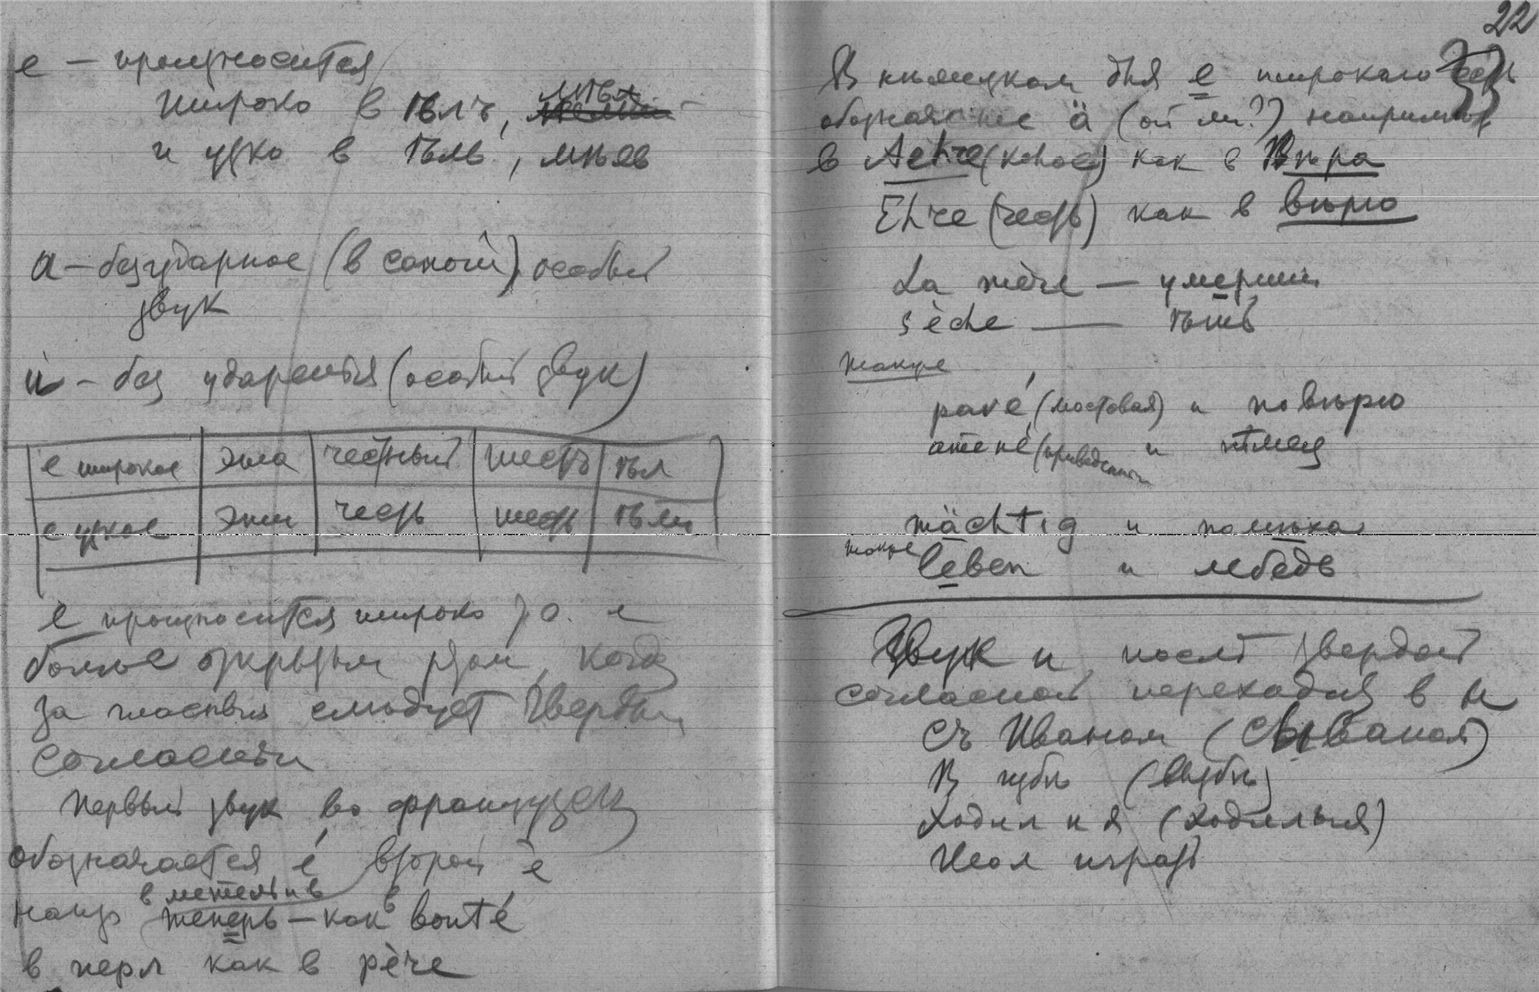 е — произносится
широко в ѣлъ, мѣл
и узко в ѣль, мнѣе
а — безударное (в самой) особый
звук
и — без ударенья (особый звук)
е широкое эта честный шестъ ѣл
е узкое эти честь шесть ѣли
е произносится широко т. е
более открытым ртом, когда
за гласным слѣдует твердый
согласный
первый звук во французск
обозначается é второй è
в метель и в
напр теперь — как в bonté
в перл как в père
22
В нѣмецком для е широкаго есть
обозначение ä (ой ли?) например
в Aehre (колос) как в Вѣра
Ehre (честь) как в вѣрю
La mère — умерший
sèche —
также
pavé (мостовая) и повѣрю
amené (приведенный) и
mächtig и
также
leben и лебедь
Звук и послѣ твердой
согласной переходит в ы
Съ Иваном (Сываном)
В избѣ (вызбѣ)
Ходил и я (ходилыя)
Шол играть